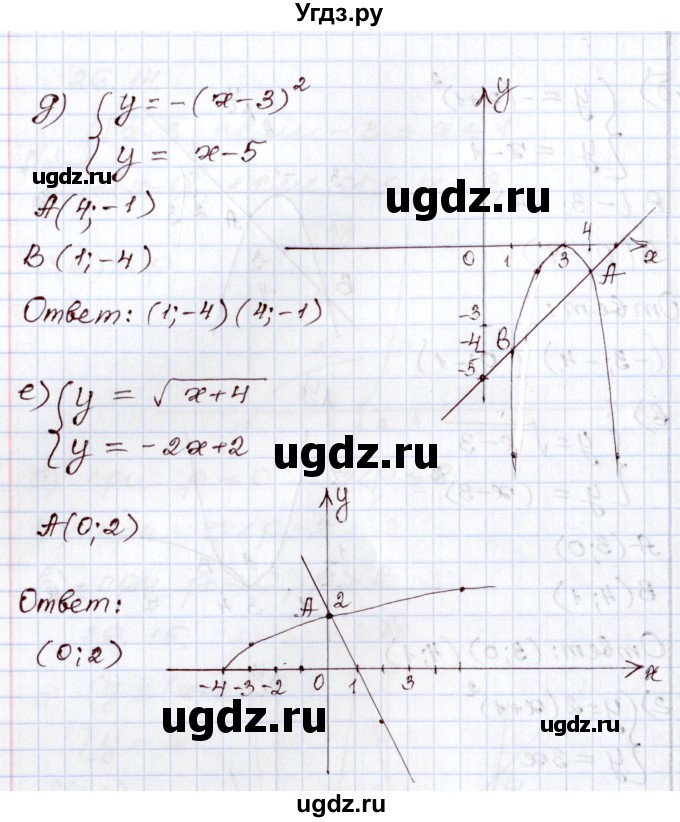 Угдз.ру
д) { y = -(x-3)²
y = x-5
ugdz.ru
A(4;-1)
B(1;-4)
Ответ: (1;-4) (4;-1)
y
ugdz.ru
0 1 3 4 x
A
-3
-4 B
-5
е) { y = √x+4
y = -2x+2
ugdz.ru
A(0;2)
Ответ:
(0;2)
y
A 2
-4 -3 -2 0 1 3 x
ugdz.ru
ugdz.ru
ugdz.ru